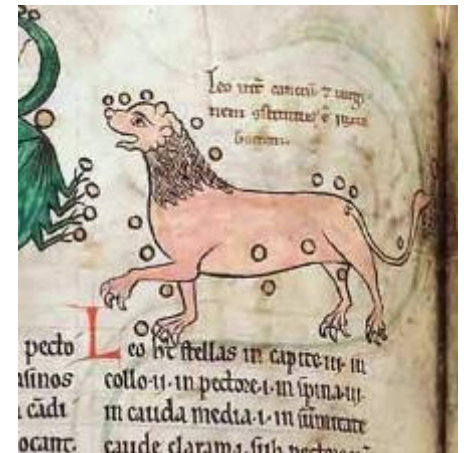 Leo int̄ cancrū ⁊ uirgi-
nem
pecto
asinos
cādi
ocant.
Leo ht̄ stellas in capite·iii·in
collo·ii·in pectore·i·in spina·iii·
in cauda media·i·in sūmitate
caude claram·i·sub pectore